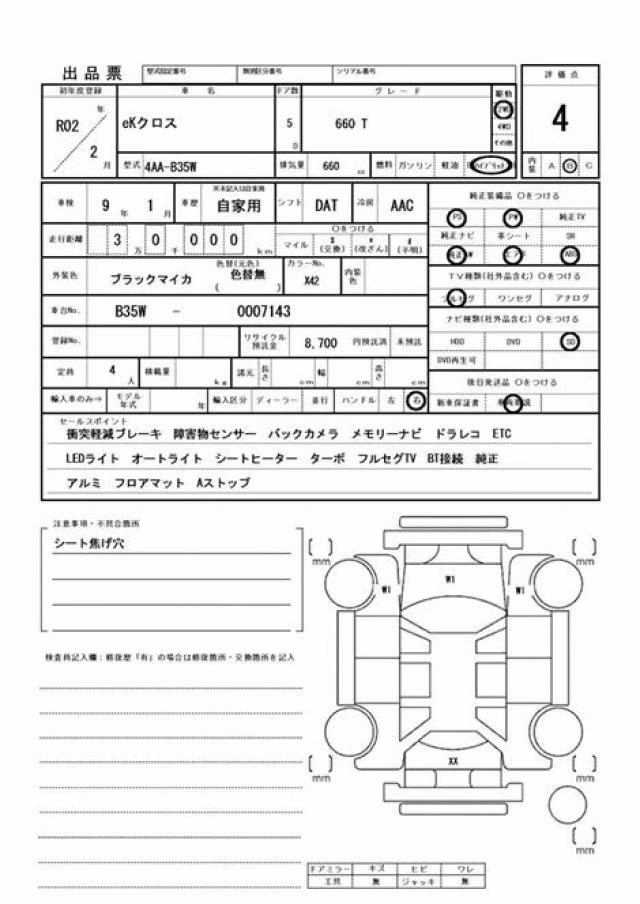 出品票 型式指定番号 類別区分番号 シリアル番号
初年度登録 車名 ドア数 グレード 駆動 評価点
R02 年 2 月 eKクロス 5 D 660 T 2WD 4WD その他 4
型式 4AA-B35W 排気量 660 cc 燃料 ガソリン 軽油 ハイブリッド 内装 A B C
車検 9 年 1 月 車歴 ※未記入は自家用 自家用 シフト DAT 冷房 AAC
走行距離 3 万 0 千 0 0 0 km ○をつける マイル $ (交換) * (改ざん) # (不明)
外装色 ブラックマイカ 色替(元色) 色替無 ( ) カラーNo. X42 内装色
車台No. B35W - 0007143
登録No. リサイクル預託金 8,700 円預託済 未預託
定員 4 人 積載量 kg 諸元 長さ cm 幅 cm 高さ cm
輸入車のみ⇒ モデル年式 年 輸入区分 ディーラー 並行 ハンドル 左 右
純正装備品 ○をつける
PS PW 純正TV
純正ナビ 革シート SR
純正AW エアB ABS
TV種類(社外品含む) ○をつける
フルセグ ワンセグ アナログ
ナビ種類(社外品含む) ○をつける
HDD DVD SD
DVD再生可
後日発送品 ○をつける
新車保証書
セールスポイント
衝突軽減ブレーキ 障害物センサー バックカメラ メモリーナビ ドラレコ ETC
LEDライト オートライト シートヒーター ターボ フルセグTV BT接続 純正
アルミ フロアマット Aストップ
注意事項・不具合箇所
シート焦げ穴
検査員記入欄：修復歴「有」の場合は修復箇所・交換箇所を記入
[ ] mm [ ] mm
W1
W1 W1
XX
[ ] mm [ ] mm
[ ] mm
ドアミラー キズ ヒビ ワレ
工具 無 ジャッキ 無